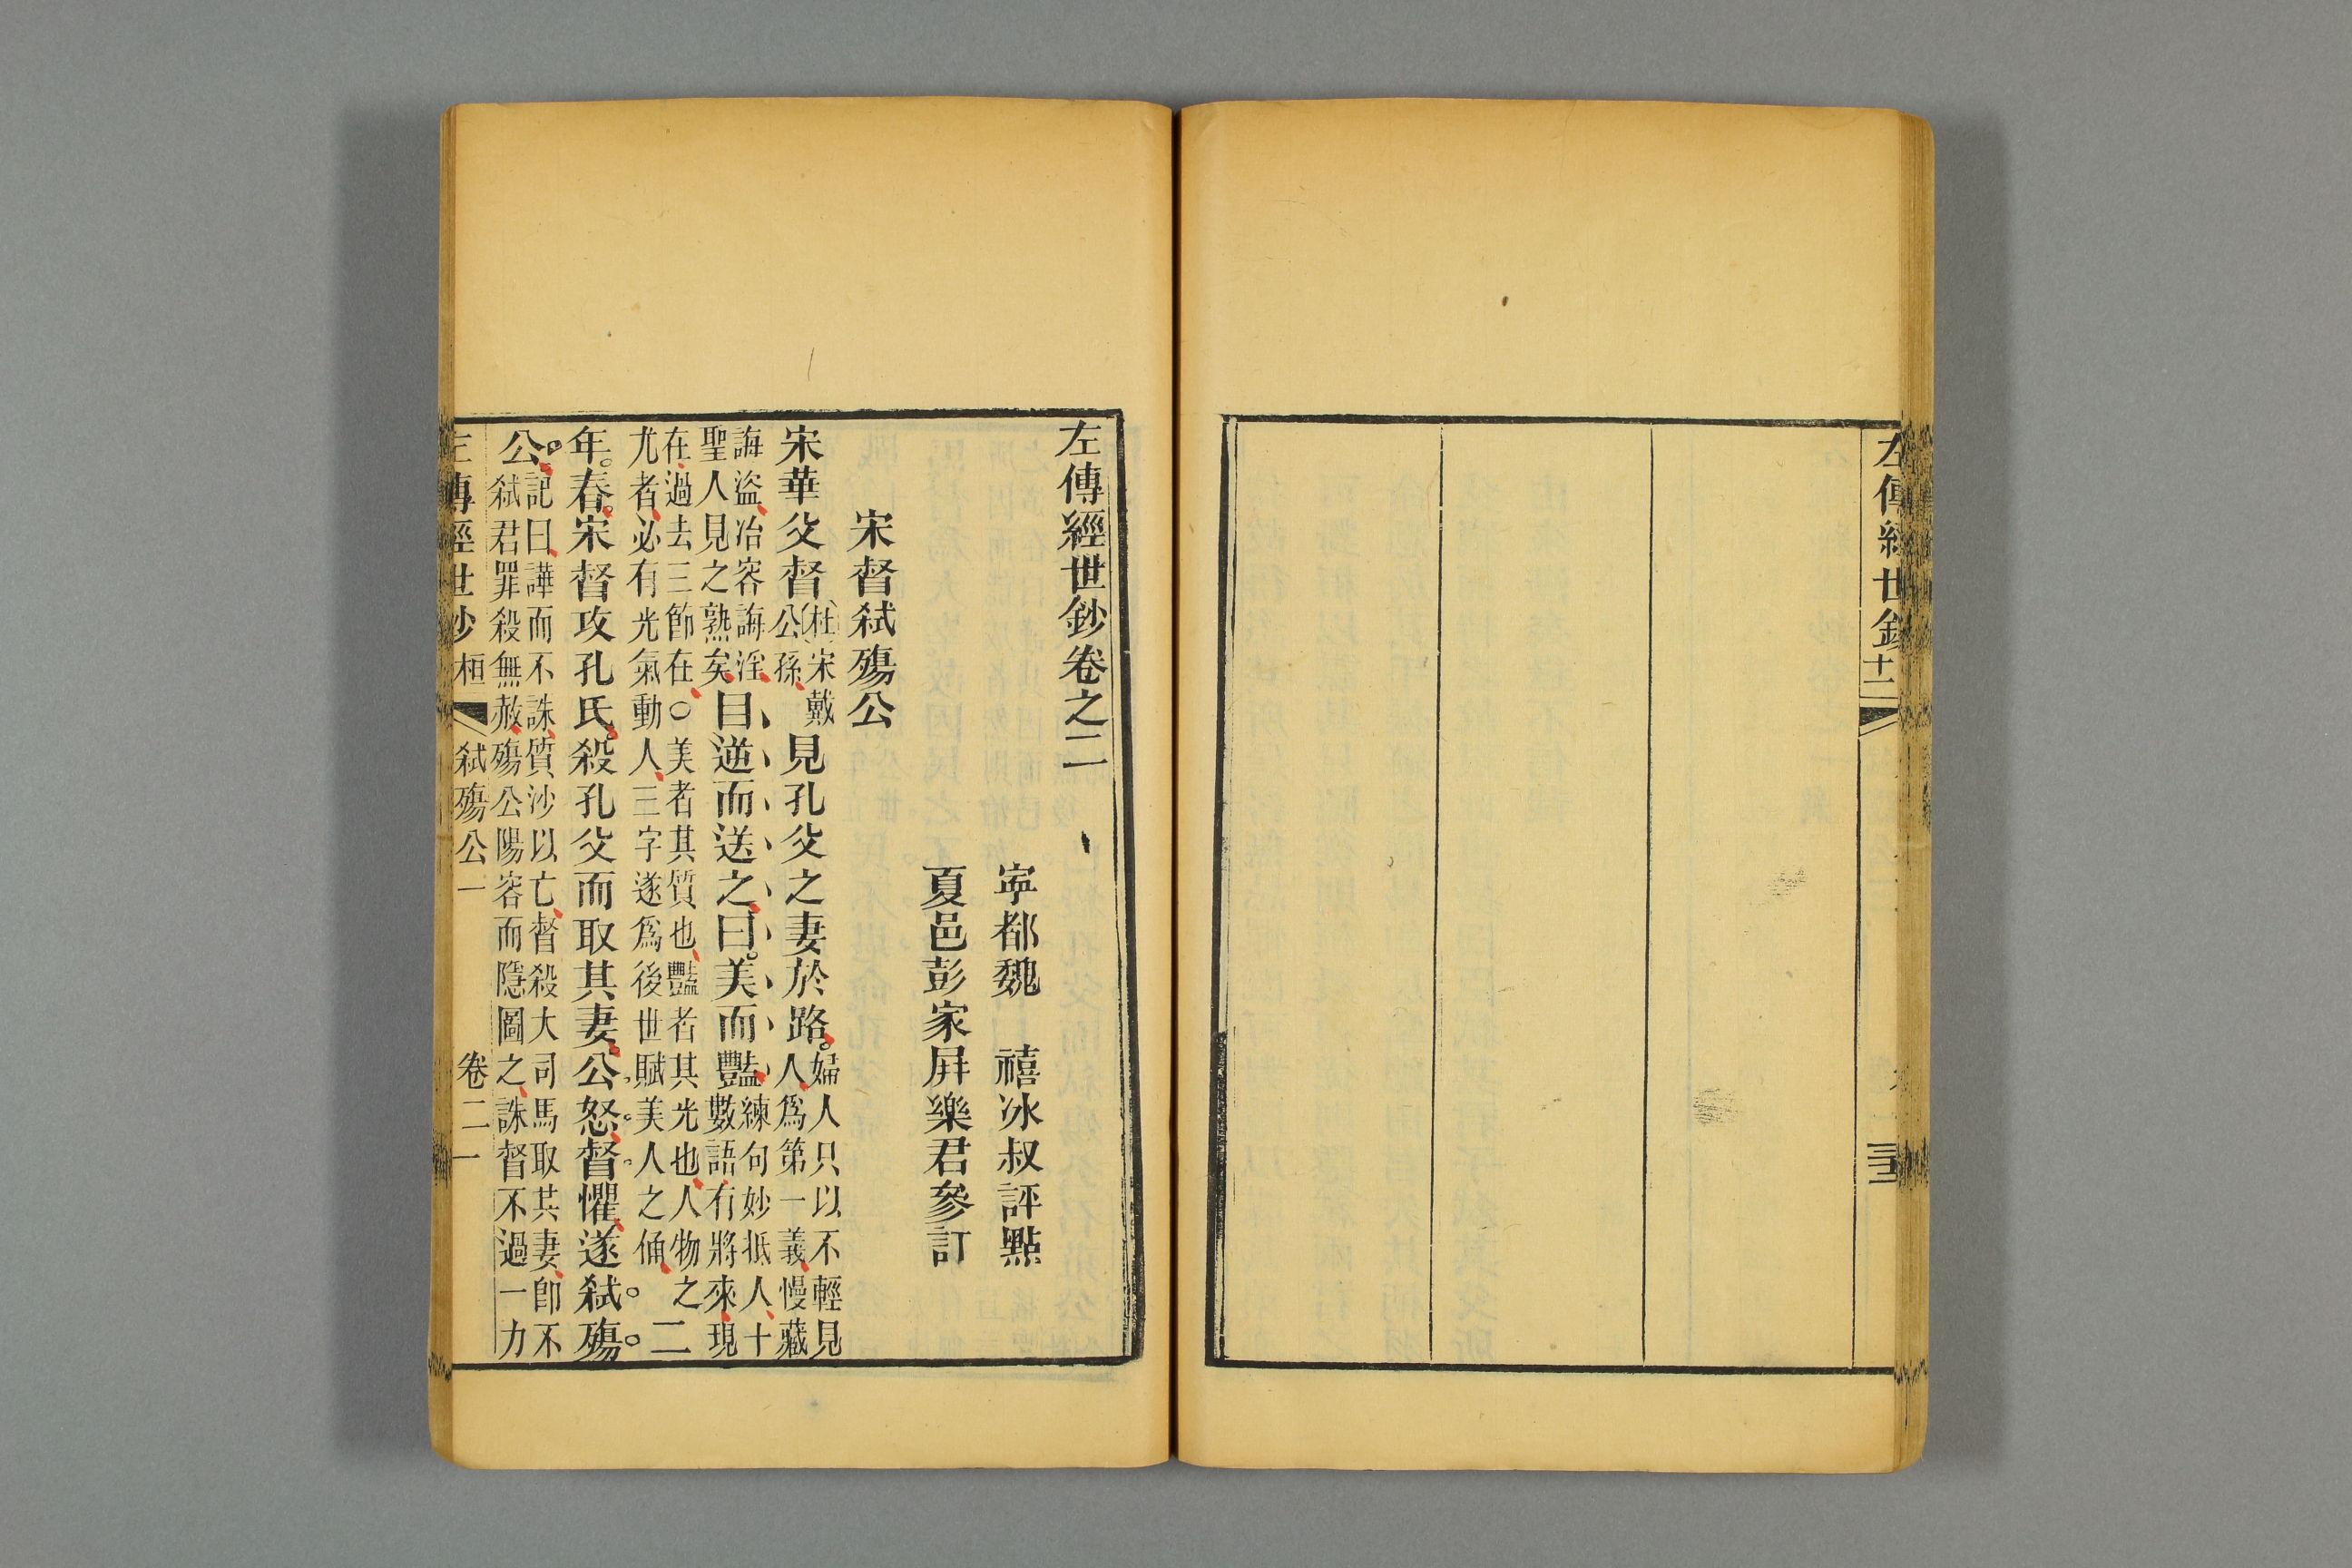 左傳經世鈔 十二
左傳經世鈔卷之二
寧都魏 禧冰叔評點
夏邑彭家屏樂君參訂
宋督弒殤公
宋華父督(杜)宋戴公孫見孔父之妻於路。婦人只以不輕見人、爲第一義、慢藏
誨盜、冶容誨淫、聖人見之熟矣、目逆而送之、曰。美而豔、練句妙抵人、十數語、有將來、現
在、過去三節在、○美者其質也、豔者其光也、人物之尤者、必有光氣動人、三字遂爲後世賦美人之俑、二
年。春。宋督攻孔氏。殺孔父而取其妻。公怒。督懼、遂弒殤
公。記曰、譁而不誅、質沙以亡、督殺大司馬取其妻、卽不弒君罪殺無赦、殤公陽容而隱圖之、誅督不過一力
左傳經世鈔 桓 弒殤公一 卷二 一